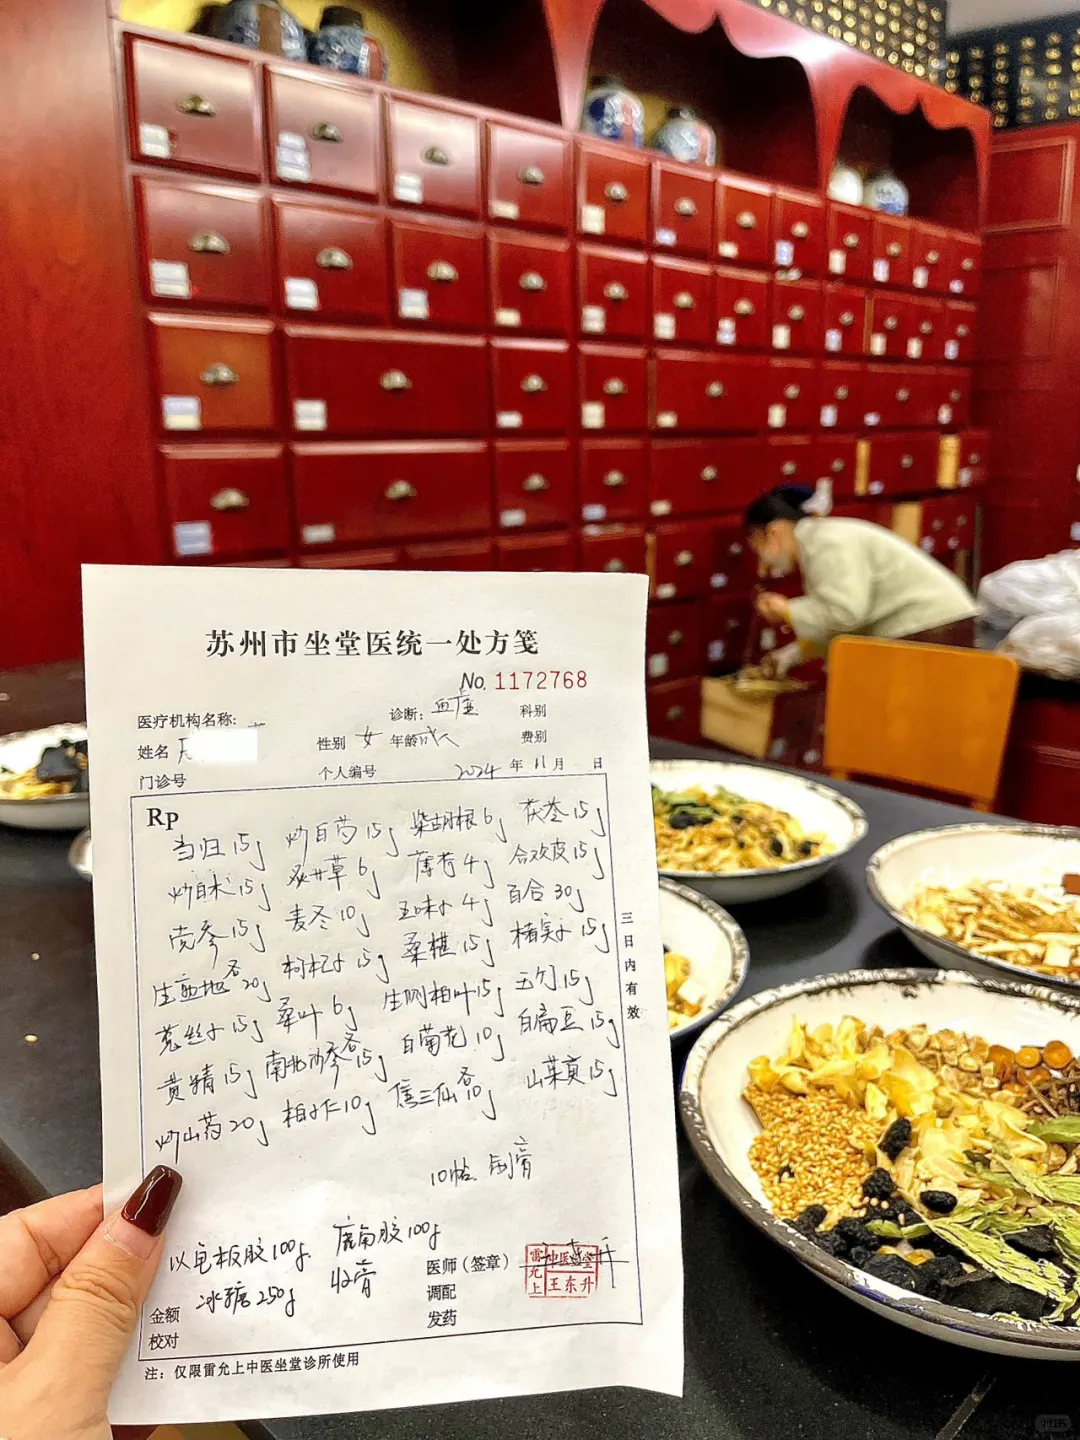 苏州市坐堂医统一处方笺
No. 1172768
医疗机构名称: 诊断: 科别
姓名 性别 女 年龄 成人 费别
门诊号 个人编号 2024 年 11 月 日
Rp
当归 15g 炒白芍 15g 柴胡根 6g 茯苓 15g
炒白术 15g 炙甘草 6g 薄荷 4g 合欢皮 15g
党参 15g 麦冬 10g 五味子 4g 百合 30g
生熟地各 20g 枸杞子 15g 桑椹 15g 楮实子 15g
菟丝子 15g 桑叶 6g 生侧柏叶 15g 15g
黄精 15g 南北沙参各 15g 白菊花 10g 白扁豆 15g
炒山药 20g 柏子仁 10g 焦三仙各 10g 山茱萸 15g
三日内有效
10帖 制膏
以龟板胶 100g. 鹿角胶 100g
冰糖 250g 收膏
医师（签章）
雷允上中医坐堂
王东升
金额 调配
校对 发药
注：仅限雷允上中医坐堂诊所使用